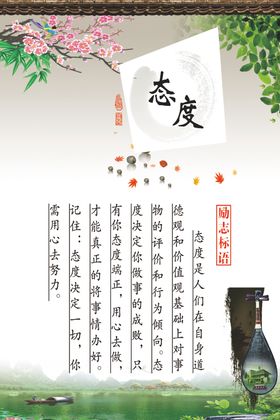 态度
励志标语
态度是人们在自身道
德观和价值观基础上对事
物的评价和行为倾向。态
度决定你做事的成败，只
有你态度端正，用心去做，
才能真正的将事情办好。
记住：态度决定一切，你
需用心去努力。